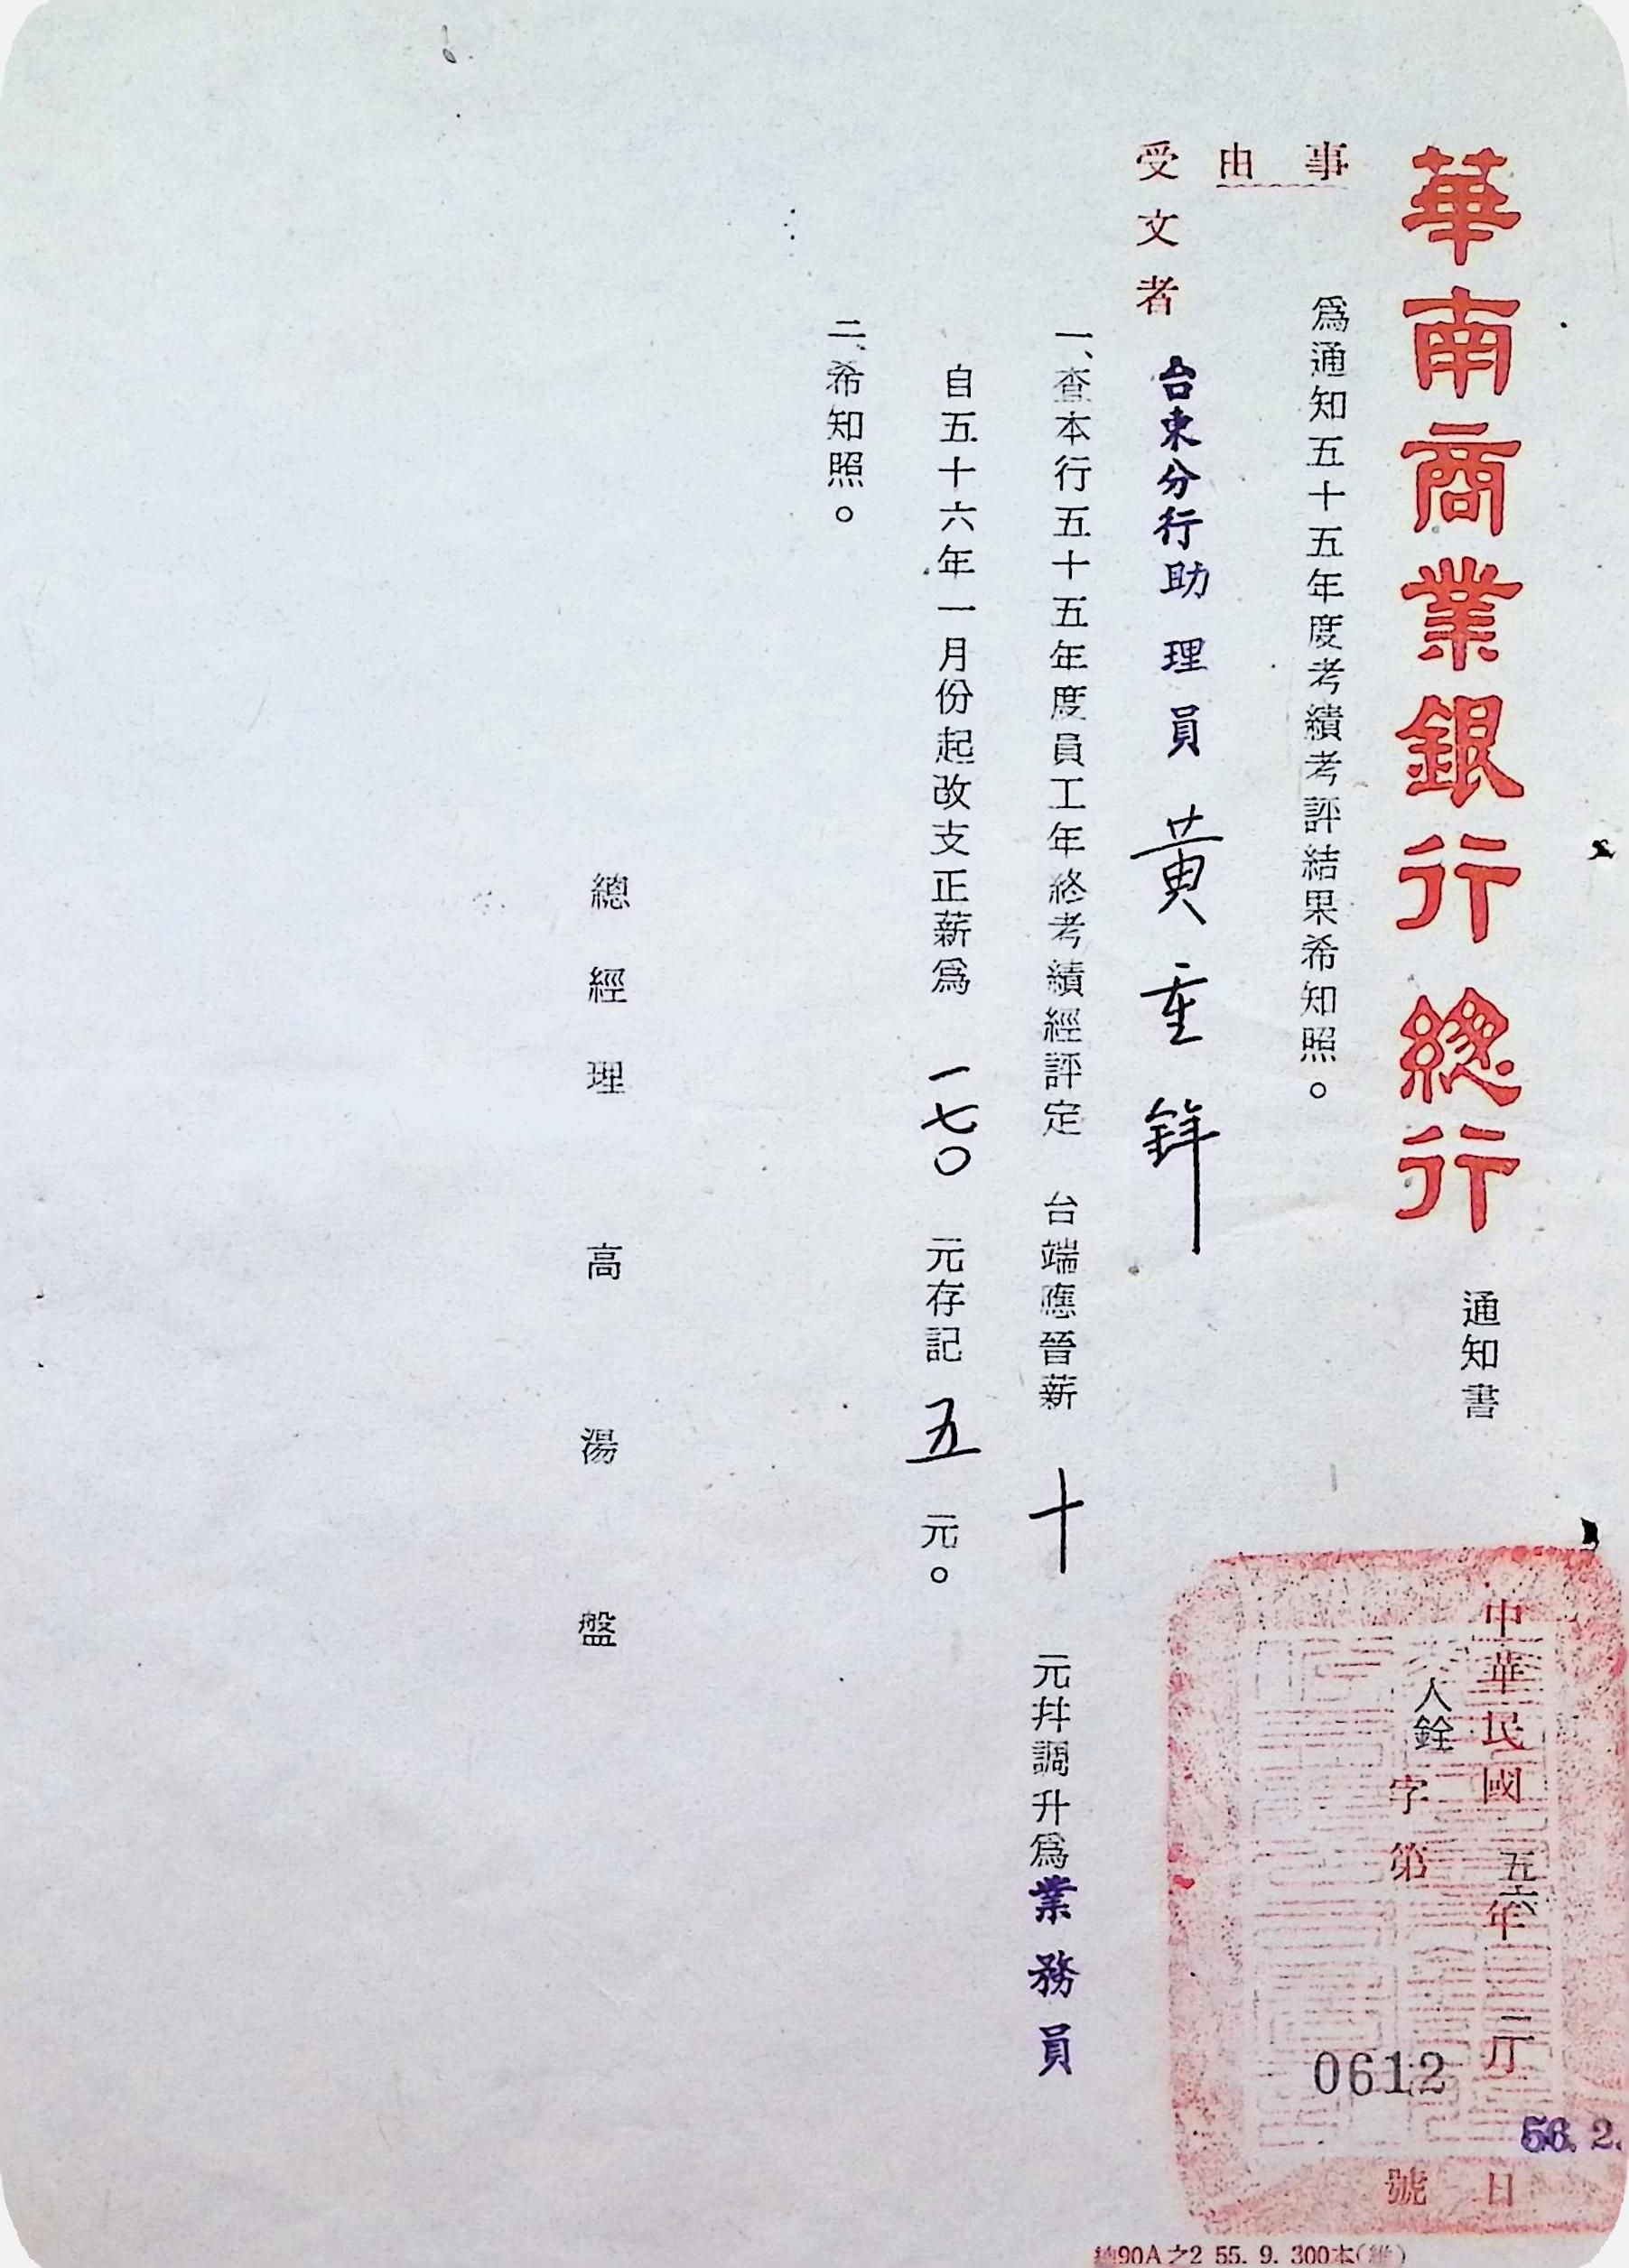 華南商業銀行總行 通知書
中華民國五六年二月 日
56. 2.
人銓字第0612號
事由 為通知五十五年度考績考評結果希知照。
受文者 台東分行助理員 黃重鋒
一、查本行五十五年度員工年終考績經評定 台端應晉薪 十 元幷調升為業務員
自五十六年一月份起改支正薪為 一七〇 元存記 五 元。
二、希知照。
總經理 高湯盤
90A之2 55. 9. 300本